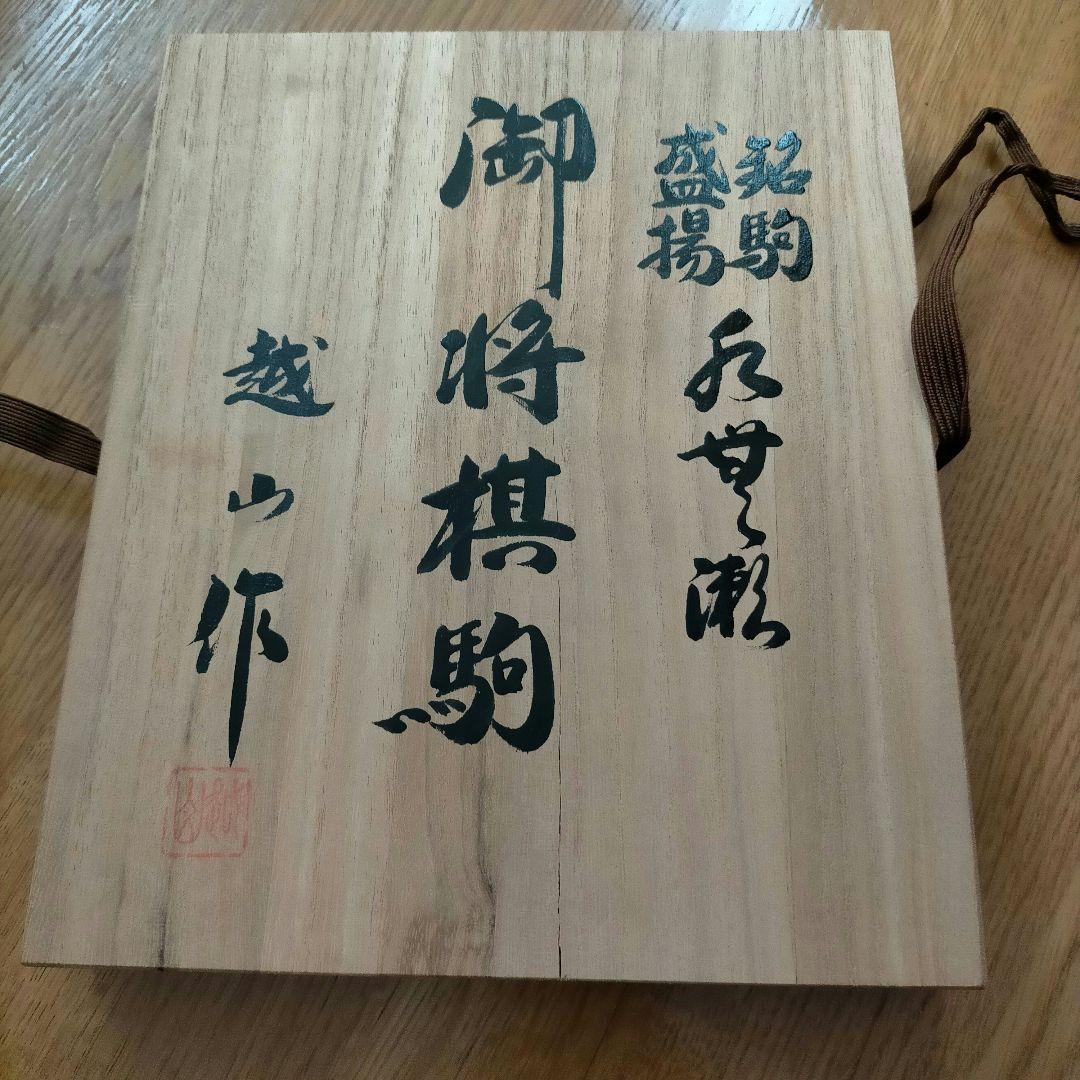 銘駒
盛揚
水無瀬
御将棋駒
越山作